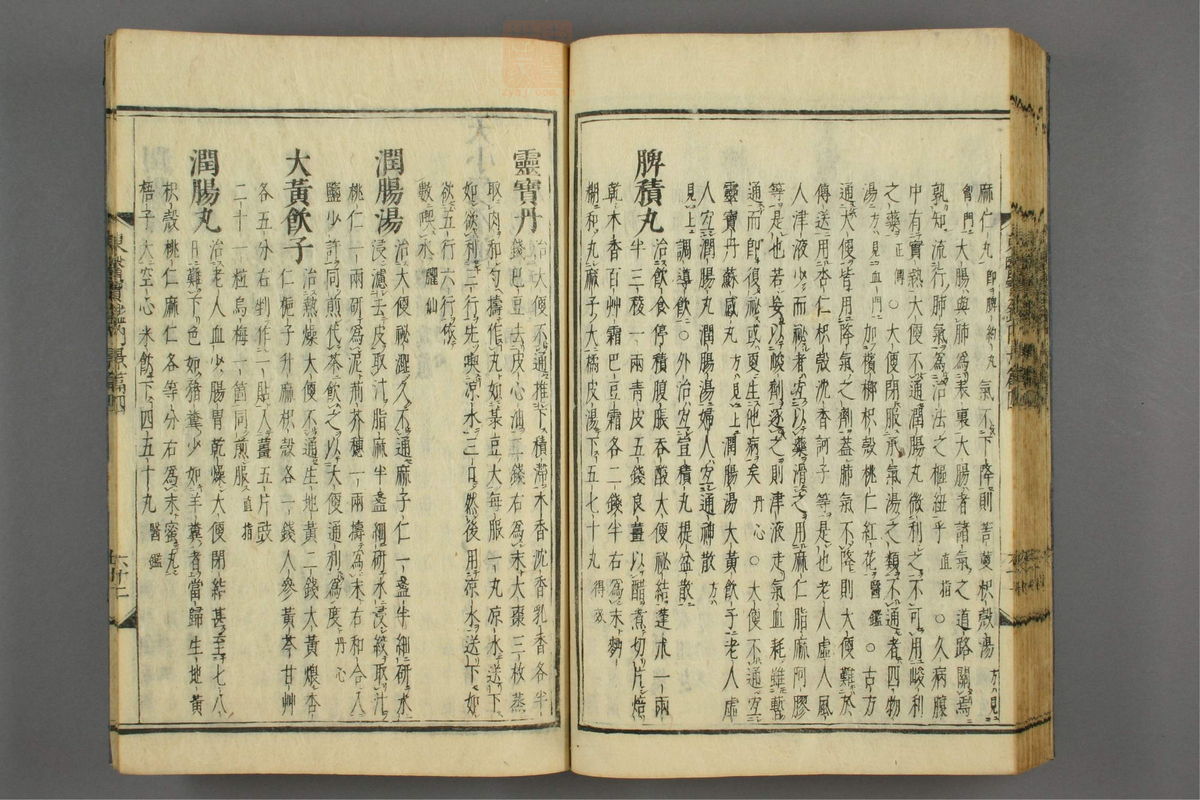 麻仁丸 即脾約丸 氣不下降則苦梗枳殼湯 方見
會門 大腸與肺爲表裏大腸者諸氣之道路關焉
孰知流行肺氣爲治法之樞紐乎 直指 ○久病腹
中有實熱大便不通潤腸丸微利之不可用峻利
之藥 正傳 ○大便閉服承氣湯之類不通者四物
湯 方見血門 加檳榔枳殼桃仁紅花 醫鑑 ○古方
通大便皆用降氣之劑蓋肺氣不降則大便難於
傳送用杏仁枳殼沈香訶子等是也老人虛人風
人津液少而祕者宜以藥滑之用麻仁脂麻阿膠
等是也若妄以峻劑逐之則津液走氣血耗雖暫
通而卽復祕或更生他病矣 丹心 ○大便不通宜
靈寶丹蘇感丸 方見上 潤腸湯大黃飮子老人虛
人宜潤腸丸潤腸湯婦人宜通神散 方
見上 調導飮○外治宜宣積丸提盆散
脾積丸 治飮食停積腹脹呑酸大便祕結蓬朮一兩
半三稜一兩靑皮五錢良薑以醋煮切片焙
乾木香百艸霜巴豆霜各二錢半右爲末麪
糊和丸麻子大橘皮湯下五七十丸 得效
靈寶丹 治大便不通推下積滯木香沈香乳香各半
錢巴豆去皮心油三錢右爲末大棗三枚蒸
取肉和勻擣作丸如菉豆大每服一丸凉水送下
如欲利三行先噢凉水三口然後用凉水送下如
欲五行六行依
數喫水 臞仙
潤腸湯 治大便祕澀久不通麻子仁一盞半細硏水
浸濾去皮取汁脂麻半盞細硏水浸絞取汁
桃仁一兩硏爲泥荊芥穗一兩擣爲末右和合入
鹽少許同煎代茶飮之以大便通利爲度 丹心
大黃飮子 治熱燥大便不通生地黃二錢大黃煨杏
仁梔子升麻枳殼各一錢人參黃芩甘艸
各五分右剉作一貼入薑五片豉
二十一粒烏梅一箇同煎服 直指
潤腸丸 治老人血少腸胃乾燥大便閉結甚至七八
日難下色如猪糞少如羊糞者當歸生地黃
枳殼桃仁麻仁各等分右爲末蜜丸
梧子大空心米飮下四五十丸 醫鑑
六十二